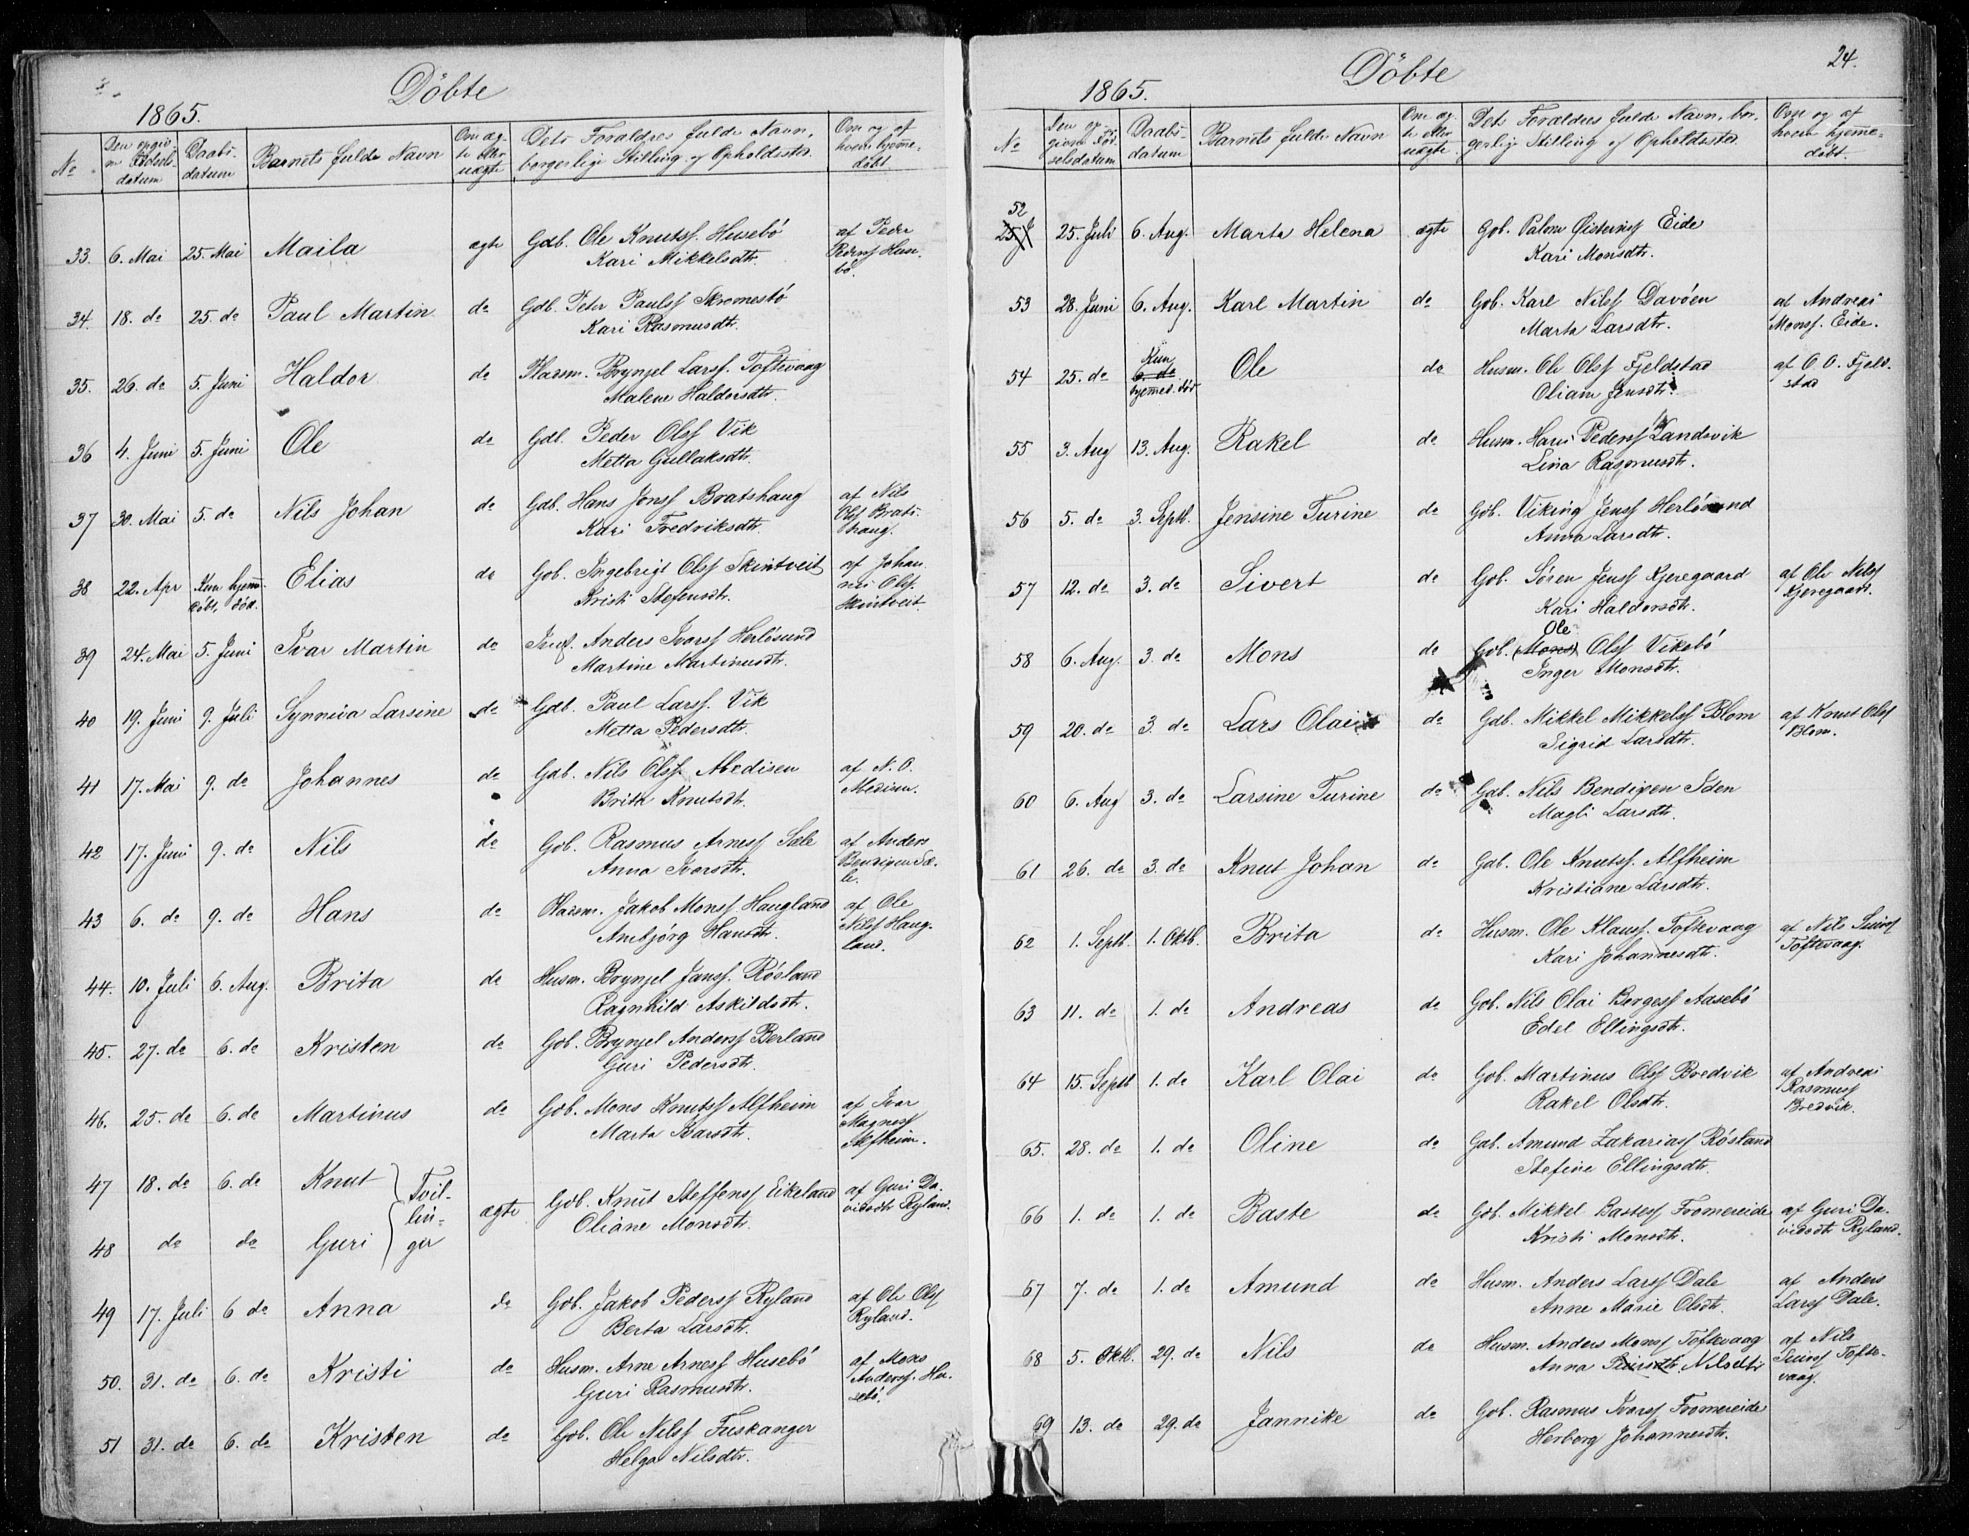 Döbte
1865.
No
Den opgiv
ne Födsels
datum
Daabs-
datum
Barnets fulde Navn
Om æg-
te eller
uægte
Dets Forældres fulde Navn,
borgerlige Stilling og Opholdsste
Om og af
hvem hjemme-
döbt
33. 6. Mai 25. Mai Maila ægte Gdb. Ole Knutss. Husebö af Peder
Kari Mikkelsdtr. Pederss Huse-
bö
34. 18. do 25. do Paul Martin do Gdb. Peter Paulss Skromesbö
Kari Rasmusdtr.
35. 26. do 5. Juni Haldor do Pladsm. Brynjel Larss. Toftevaag
Malene Haldorsdtr.
36 4. Juni 5. Juni Ole do Gdb. Peder Olss Vik
Metta Gullaksdtr.
37 30. Mai 5. do Nils Johan do Gdb. Hans Jonss Bratshaug af Nils
Kari Fredriksdtr. Olss Brats-
haug.
38 22. Apr Kun hjem- Elias do Gdb. Ingebrigt Olss Skintveit af Johan
döbt, död. Kristi Stefensdtr. nes Olss.
Skintveit
39 24. Mai 5. Juni Ivar Martin do Anders Ivarss Herlösund
Martine Martinusdtr.
40 19. Juni 9. Juli Synneva Larsine do Gdb. Paul Larss. Vik
Metta Pedersdtr.
41 17. Mai 9. do Johannes do Gdb. Nils Olss. Medisen af N. O.
Brith Knutsdtr. Medisen.
42 17. Juni 9. do Nils do Gdb. Rasmus Arness Sæle af Anders
Anna Ivarsdtr. Bendixen Sæ-
le.
43 6. do 9. do Hans do Pladsm. Jakob Monss Haugland af Ole
Anbjörg Hansdtr. Nilss Haug-
land.
44. 10. Juli 6. Aug. Brita do Husm. Brynjel Janss. Rösland
Ragnhild Askildsdtr.
45. 27. do 6. do Kristen do Gdb. Brynjel Anderss Berland
Guri Pedersdtr.
46. 25. do 6. do Martinus do Gdb. Mons Knutss Alfheim af Ivar
Marta Ivarsdtr. Magness
Alfheim.
47 18. do 6. do Knut Tvil-
lin-
ger ægte Gdb. Knut Steffenss Eikeland af Guri Da-
Oliane Monsdtr. vidsdtr Ryland.
48 do do Guri
49 17. Juli 6 do Anna do Gdb. Jakob Pederss Ryland af Ole Olss
Berta Larsdtr. Ryland.
50. 31. do 6. do Kristi do Husm. Arne Arness Husebö af Mons
Guri Rasmusdtr. Anderss. Hu-
sebö.
51 31. do 6. do Kristen do Gdb. Ole Nilss Fuskanger
Helga Nilsdtr.
24.
Döbte
1865.
No
Den op-
givne Föd-
selsdatum
Daabs-
datum
Barnets fulde Navn
Om æg-
te eller
uægte
Dets Forældres fulde Navn, bor-
gerlige Stilling og Opholdssted
Om og af
hvem hjemme-
döbt.
52
25. Juli 6. Aug. Marta Helena ægte Gdb. Palem Öisteinss Eide
Kari Monsdtr.
53 28. Juni 6. Aug. Karl Martin do Gdb. Karl Nilss Davöen af Andreas
Marta Larsdtr. Monss. Eide.
54 25. do Kun
6. do
hjemmed. död Ole do Husm. Ole Olss Fjeldstad af O O. Fjeld-
Oliana Jensdtr. stad
55 3. Aug 13. Aug. Rakel do Husm. Hans Pederss Landsvik
Lina Rasmusdtr.
56 5. do 3. Septb. Jensine Turine do Gdb. Viking Jenss Herlösund
Anna Larsdtr.
57 12. do 3. do Sivert do Gdb. Sören Jenss Kjeregaard af Ole Nilss
Kari Haldorsdtr. Kjeregaard.
Ole
58 6. Aug. 3. do Mons do Gdb. (Mons) Olss Vikebö
Inger Monsdtr.
59 20. do 3. do Lars Olai do Gdb. Mikkel Mikkelss Blom af Knut Olss
Sigrid Larsdtr. Blom.
60 6. Aug 3. do Larsine Turine do Gdb. Nils Bendixen Iden
Magli Larsdtr.
61 26. do 3. do Knut Johan do Gdb. Ole Knutss. Alfheim
Kristiane Larsdtr.
62 1. Septb. 1. Oktb. Brita do Husm. Ole Klauss. Toftevaag af Nils
Kari Johannesdtr. Toftevaag.
63 11. do 1. do Andreas do Gdb. Nils Olai Bergess Aasebö
Edel Ellingsdtr.
64 15. Septb 1. do Karl Olai do Gdb. Martinus Olss Bredvik af Andreas
Rakel Olsdtr. Rasmuss
Bredvik.
65. 28. do 1. do Oline do Gdb. Amund Zakariass Rösland
Stefine Ellingsdtr.
66 1. do 1. do Baste do Gdb. Mikkel Bastess Fromereide af Guri Da-
Kristi Monsdtr. vidsdtr Ryland.
67 7. do 1. do Amund do Husm. Anders Larss Dale af Anders
Anne Marie Olsdtr. Larss Dale.
68 5. Oktb. 29. do Nils do Husm. Anders Monss Toftevaag af Nils
Anna Nilsdtr Tofte-
vaag.
69 13. do 29. do Jannike do Gdb. Rasmus Ivarss Fromereide
Herborg Johannesdtr.